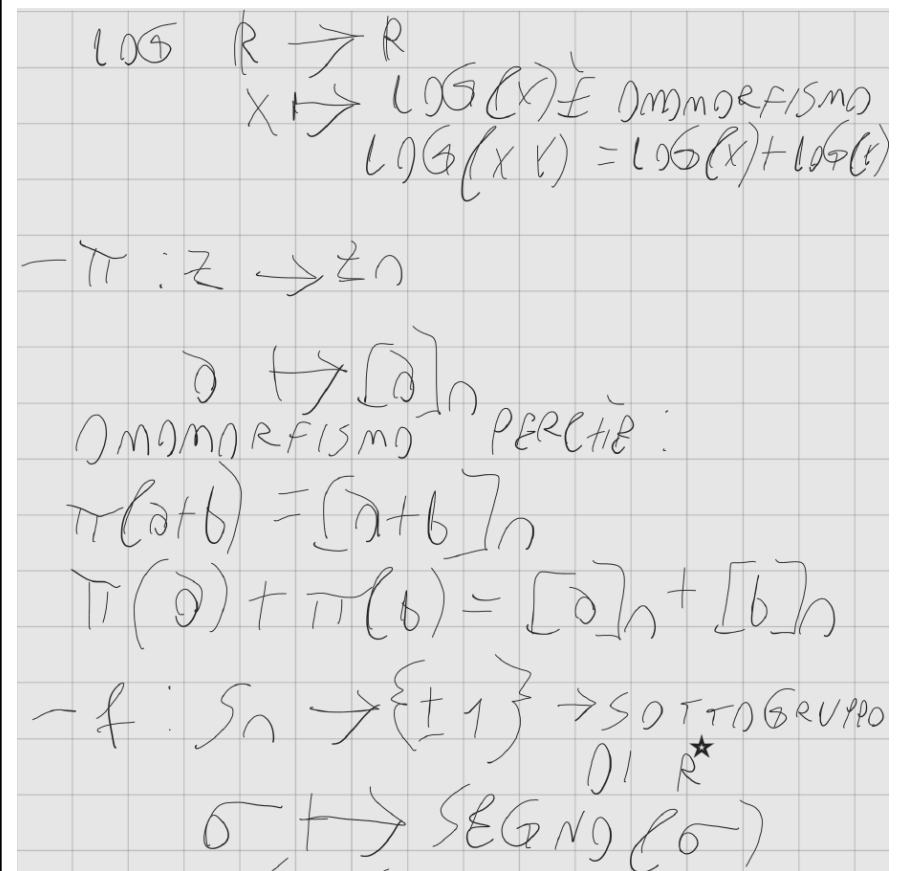 LOG R → R
X ↦ LOG(X) È OMOMORFISMO
LOG(XY) = LOG(X)+LOG(Y)
- π : Z → Zn
a ↦ [a]n
OMOMORFISMO PERCHÈ :
π(a+b) = [a+b]n
π(a) + π(b) = [a]n + [b]n
- f : Sn → {±1} → SOTTOGRUPPO
DI R☆
σ ↦ SEGNO(σ)